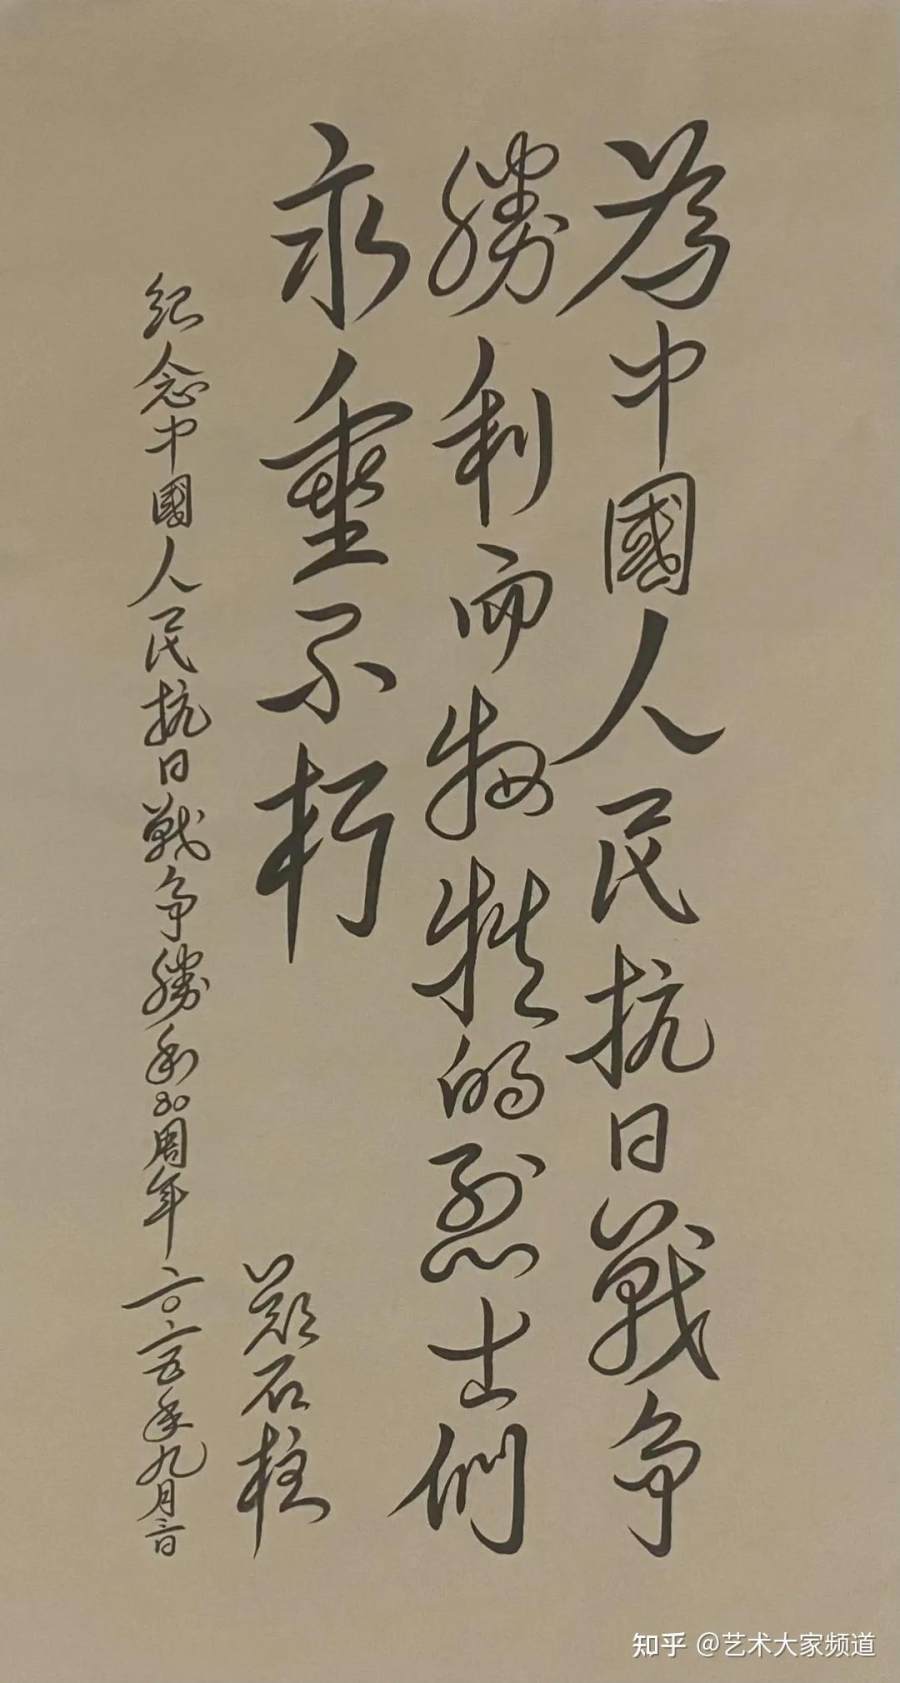 為中國人民抗日戰争
勝利而牺牲的烈士們
永垂不朽
鄭石柱
紀念中國人民抗日戰争勝利80周年二〇二五年九月三日
知乎 @艺术大家频道